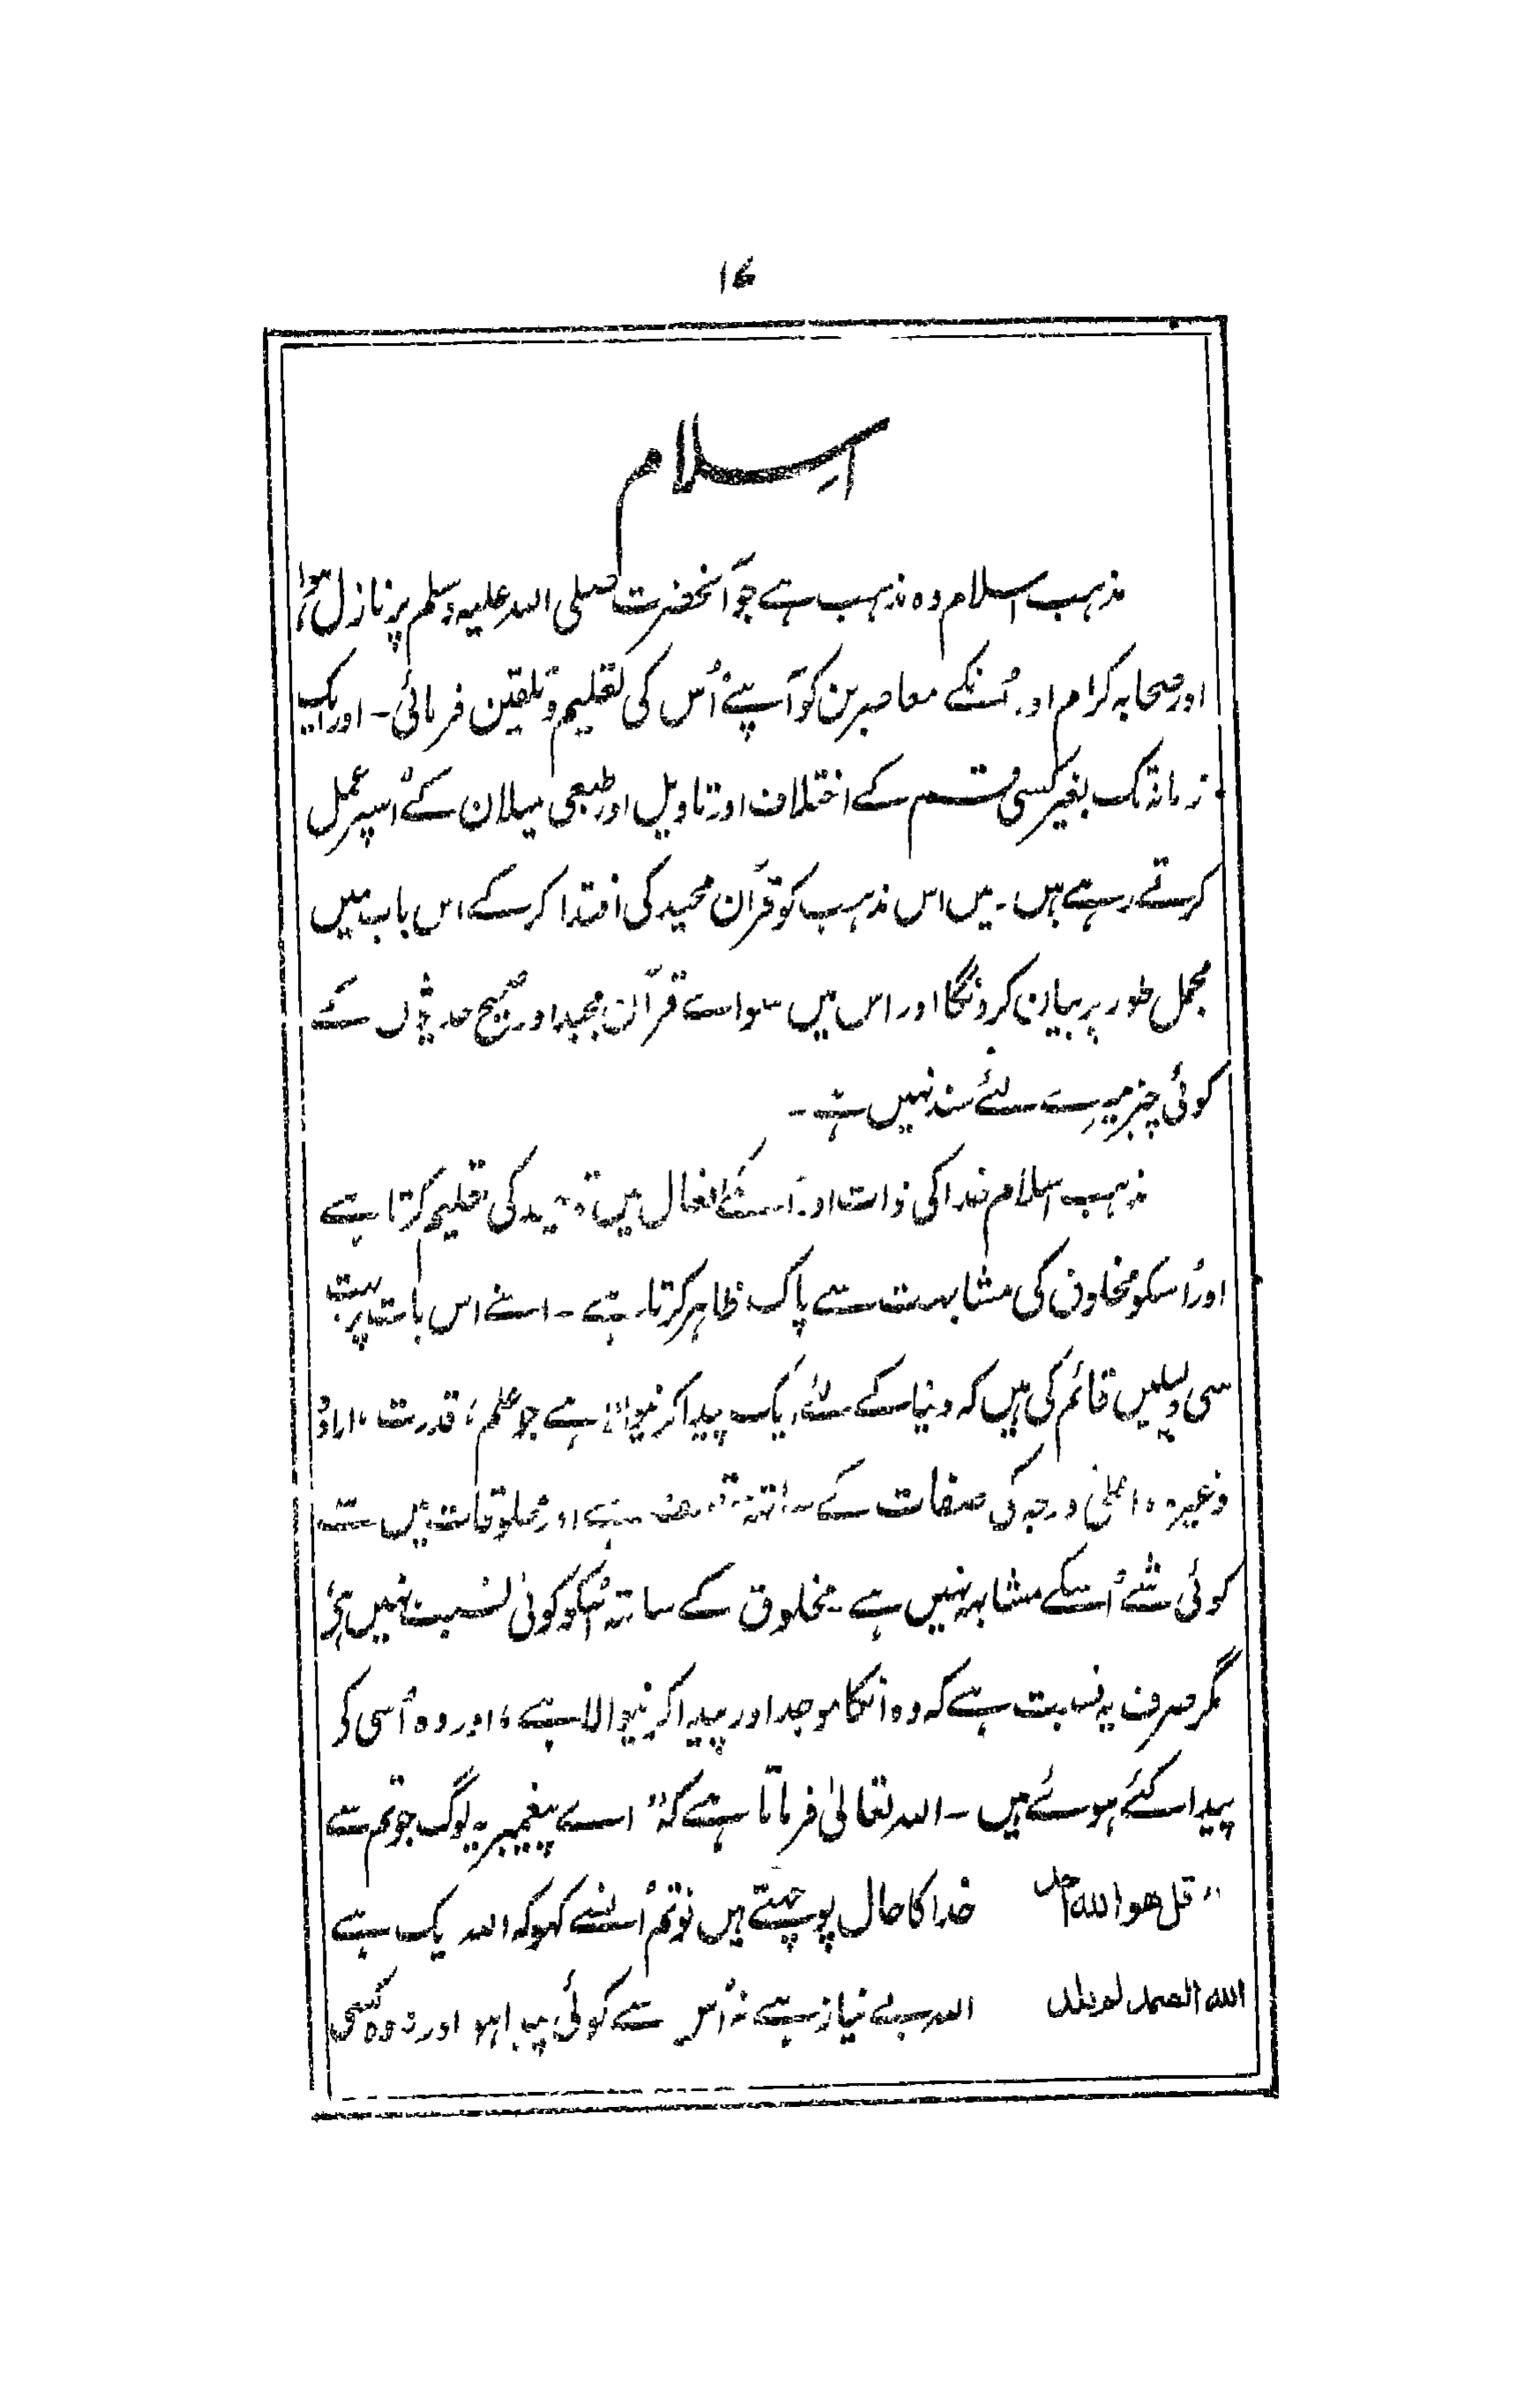 ۱۷
اسلام
مذہب اسلام وہ مذہب ہے جو آنحضرت صلی اللہ علیہ وسلم پر نازل ہوا،
اور صحابہ کرام اور اُنکے معاصرین کو آپنے اُس کی تعلیم و تلقین فرمائی۔ اور ایک
زمانہ تک بغیر کسی قسم کے اختلاف اور تاویل اور طبعی میلان کے اُسپر عمل
کرتے رہے ہیں۔ میں اس مذہب کو قرآن مجید کی اقتدا کر کے اس باب میں
مجمل طور پر بیان کرونگا اور اس میں سواے قرآن مجید اور صحیح حدیثوں کے
کوئی چیز میرے لئے سند نہیں ہے۔
مذہب اسلام خدا کی ذات اور اُسکے افعال میں توحید کی تعلیم کرتا ہے
اور اُسکو مخلوق کی مشابہت سے پاک ظاہر کرتا ہے۔ اسنے اس بات پر بہت
سی دلیلیں قائم کی ہیں کہ دنیا کے لئے ایک پیدا کرنیوالا ہے جو علم، قدرت، ارادہ
وغیرہ اعلیٰ درجہ کی صفات کے ساتھ متصف ہے اور مخلوقات میں سے
کوئی شے اُسکے مشابہ نہیں ہے۔ مخلوق کے ساتھ اُسکو کوئی نسبت نہیں ہے
مگر صرف یہ نسبت ہے کہ وہ انکا موجد اور پیدا کرنیوالا ہے، اور وہ اُسی کی
پیدا کئے ہوئے ہیں۔ اللہ تعالیٰ فرماتا ہے کہ "اے پیغمبر یہ لوگ جو تم سے
"قل هو الله احد خدا کا حال پوچھتے ہیں تو تم اُنسے کہو کہ اللہ یک ہے
الله الصمد لم یلد اللہ بے نیاز ہے نہ اُس سے کوئی پیدا ہوا اور نہ وہ کسی